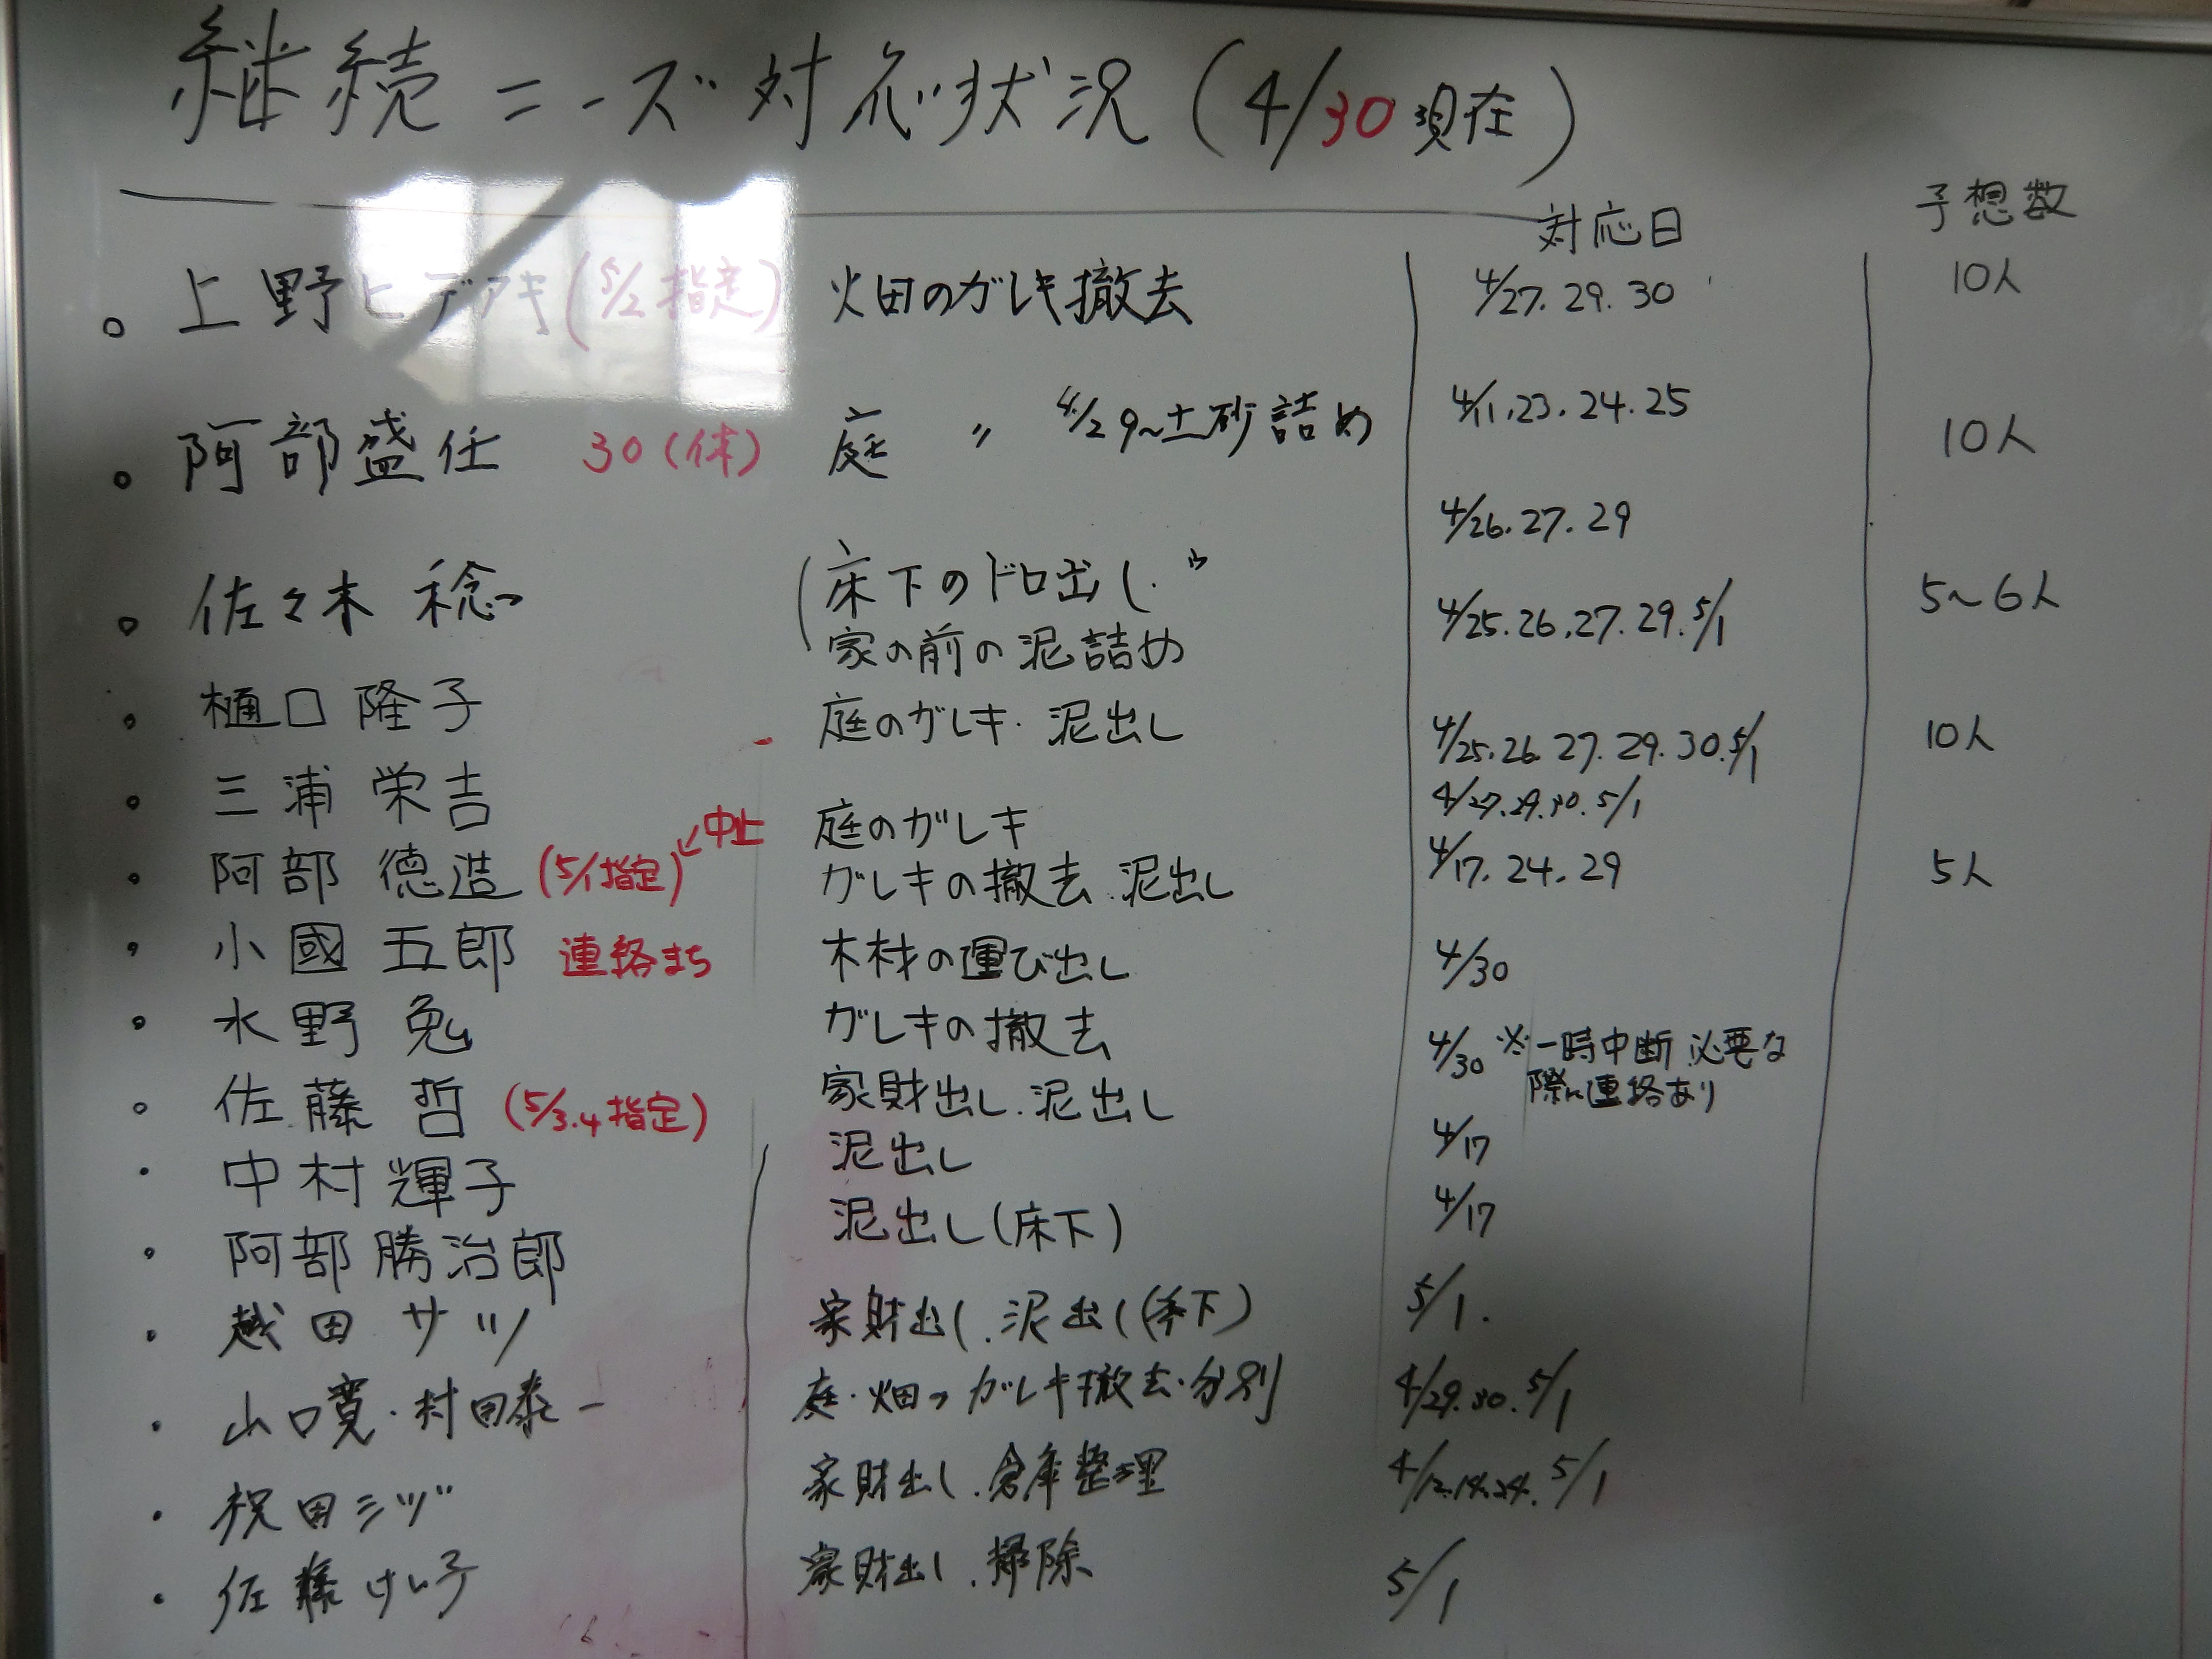 継続ニーズ対応状況(4/30現在)
対応日 予想数
上野ヒデアキ(5/2指定) 畑のガレキ撤去 4/27.29.30 10人
阿部盛任 30(休) 庭 〃 4/29~土砂詰め 4/11.23.24.25 10人
4/26.27.29
佐々木 稔 床下のドロ出し. 4/25.26.27.29.5/1 5~6人
家の前の泥詰め
樋口隆子 庭のガレキ・泥出し 4/25.26.27.29.30.5/1 10人
三浦栄吉 庭のガレキ 4/27.29.30.5/1
阿部徳造 (5/1指定)←中止 ガレキの撤去.泥出し 4/17.24.29 5人
小國五郎 連絡まち 木材の運び出し 4/30
水野 ガレキの撤去 4/30 ※一時中断 必要な
際に連絡あり
佐藤哲 (5/3.4指定) 家財出し.泥出し
中村輝子 泥出し 4/17
阿部勝治郎 泥出し(床下) 4/17
越田サツ 家財出し.泥出し(床下) 5/1.
山口寛・村田泰一 庭・畑のガレキ撤去・分別 4/29.30.5/1
祝田ミツ 家財出し.倉庫整理 4/12.14.24.5/1
佐藤けい子 家財出し.掃除 5/1